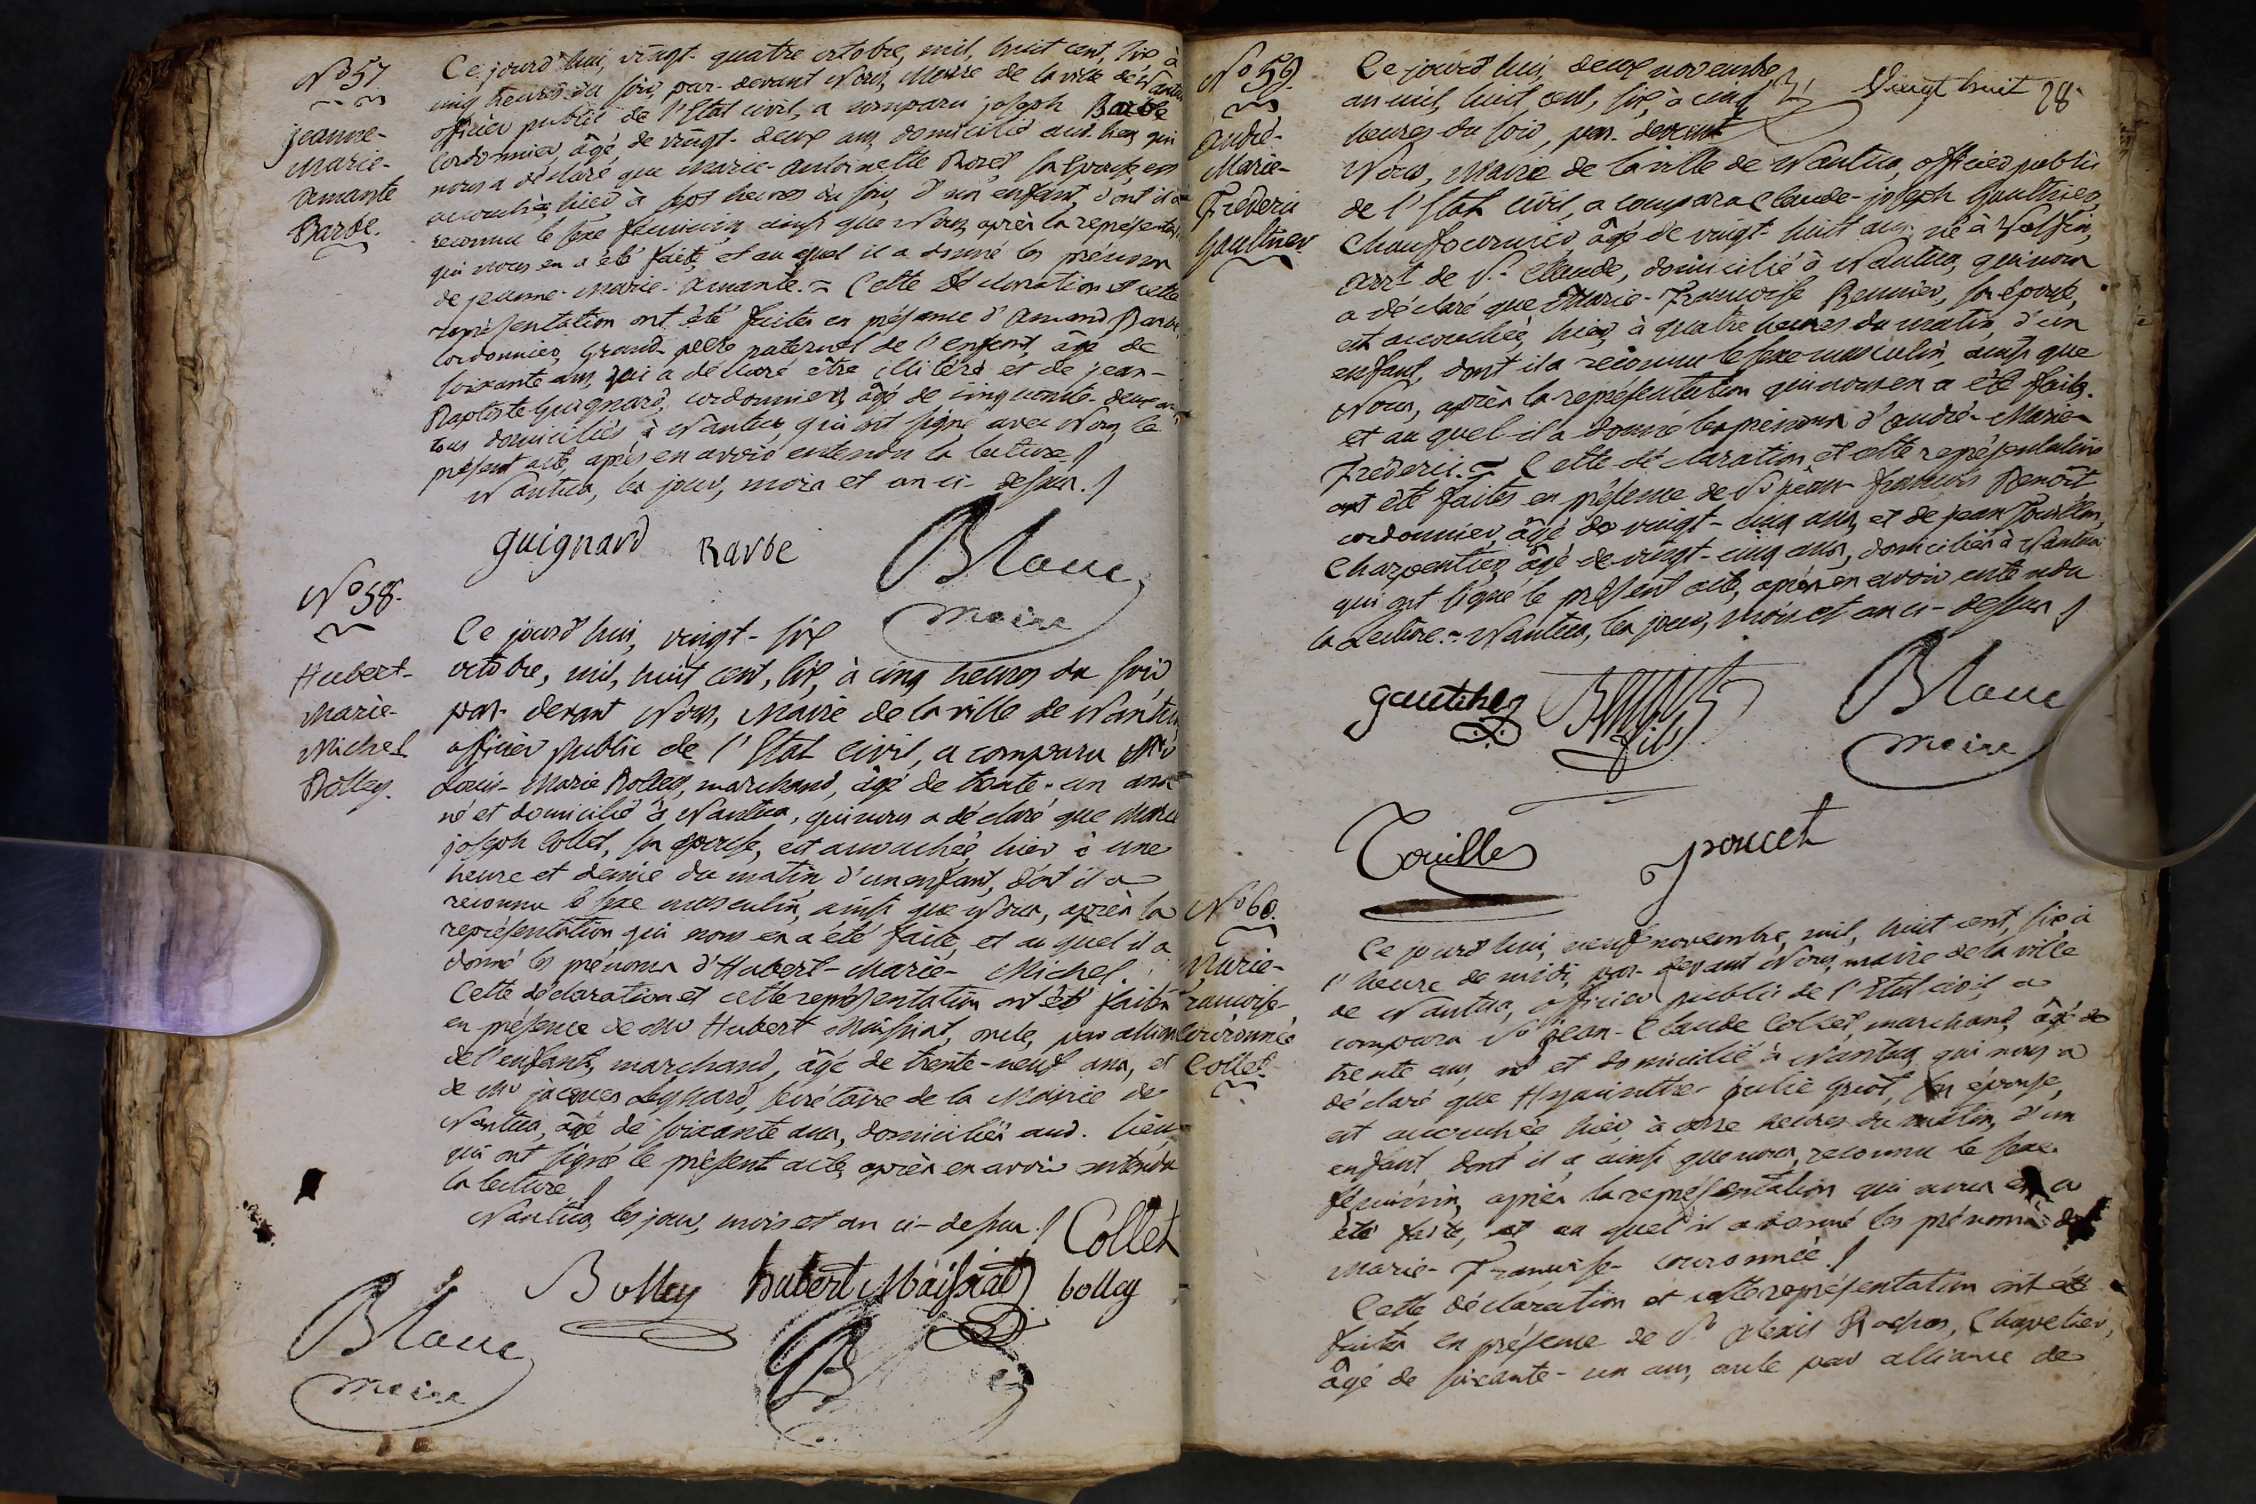 N.o 57
Jeanne-
Marie-
Amante
Barbe.
Ce jourd'hui, vingt-quatre octobre, mil, huit cent, six, à
cinq heures du soir, par-devant Nous, Maire de la ville de Nantua
officier public de l'Etat civil, a comparu joseph Barbe
Cordonnier, âgé de vingt-deux ans, domicilié aud. lieu, qui
nous a déclaré que Marie-Antoinette son Epouse, est
accouchée, hier à sept heures du soir, d'un enfant, dont il a
reconnu le sexe féminin, ainsi que Nous, après la représentation
qui nous en a été faite, et au quel il a donné les prénoms
de jeanne-Marie-Amante. = Cette Déclaration et cette
représentation ont été faites en présence d'Amand Barbe
Cordonnier, Grand-père paternel de l'enfant, âgé de
soixante ans, qui a déclaré être illitéré et de jean-
Baptiste Guignard, cordonnier, âgé de cinquante-deux ans
tous domiciliés à Nantua, qui ont signé avec Nous, le
présent acte, après en avoir entendu la lecture /
Nantua, les jour, mois et an ci-dessus. /
guignard Barbe Blanc
maire
N.o 58.
Hubert-
Marie-
Michel
Bolley.
Ce jourd'hui, vingt-six
octobre, mil, huit cent, six, à cinq heures du soir
par-devant Nous, Maire de la ville de Nantua
officier public de l'Etat civil, a comparu Mr
Louis-Marie Bolley, marchand, âgé de trente-un ans
né et domicilié à Nantua, qui nous a déclaré que Marie
joseph Collet, son épouse, est accouchée, hier à une
heure et demie du matin, d'un enfant, dont il a
reconnu le sexe masculin, ainsi que Nous, après la
représentation, qui nous en a été faite, et au quel il a
donné les prénoms d'Hubert-Marie-Michel
Cette déclaration et cette représentation ont été faites
en présence de Mr Hubert Maissiat, oncle, par alliance
de l'enfant, marchand, âgé de trente-neuf ans, et
de Mr jacques secrétaire de la Mairie de
Nantua, âgé de soixante ans, domiciliés aud. lieu
qui ont signé le présent acte, après en avoir entendu
la lecture /
Nantua, les jour, mois et an ci-dessus. / Collet
Bolley hubert Maissiat bolley
Blanc
maire
Vingt huit 28
N.o 59.
André-
Marie-
Frédéric
Gaulthier
Ce jourd'hui, deux novembre
an mil, huit cent, six, à cinq
heures du soir, par-devant
Nous, Maire de la ville de Nantua, officier public
de l'Etat civil, a comparu Claude-joseph Gaulthier,
Chaufournier, âgé de vingt-huit ans, né à
arrt de St Claude, domicilié à Nantua, qui nous
a déclaré que Marie-Françoise son épouse,
est accouchée, hier, à quatre heures du matin, d'un
enfant, dont il a reconnu le sexe masculin, ainsi que
Nous, après la représentation qui nous en a été faite.
et au quel il a donné les prénoms d'André-Marie-
Frédéric. = Cette déclaration et cette représentation
ont été faites en présence de Sr jean-françois Benoît
cordonnier, âgé de vingt-cinq ans, et de jean
Charpentier, âgé de vingt-cinq ans, domiciliés à Nantua
qui ont signé le présent acte, après en avoir entendu
la lecture. = Nantua, les jour, mois et an ci-dessus /
gautihez Benoit fils Blanc
maire
poncet
N.o 60.
Marie-
Françoise-
Couronnée
Collet.
Ce jourd'hui, neuf novembre, mil, huit cent, six, à
l'heure de midi, par-devant Nous, maire de la ville
de Nantua, officier public de l'Etat civil, a
comparu Sr jean-Claude Collet, marchand, âgé de
trente ans, né et domicilié à Nantua, qui nous a
déclaré que Hyacinthe-julie son épouse,
est accouchée, hier, à onze heures du matin, d'un
enfant, dont il a, ainsi que nous, reconnu le sexe
féminin, après la représentation qui nous en a
été faite, et au quel il a donné les prénoms de
Marie-Françoise-Couronnée. /
Cette déclaration et cette représentation ont été
faites en présence de Sr Alexis Chapelier,
âgé de soixante-un ans, oncle par alliance de